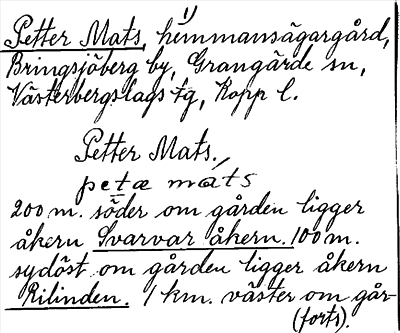 1)
Petter Mats, hemmansägargård,
Bringsjöberg by, Grangärde sn,
Västerbergslags tg, Kopp l.
Petter Mats.
petæ mats
200 m. söder om gården ligger
åkern Svarvar åkern. 100 m.
sydöst om gården ligger åkern
Rilinden. 1 km. väster om går-
(forts).